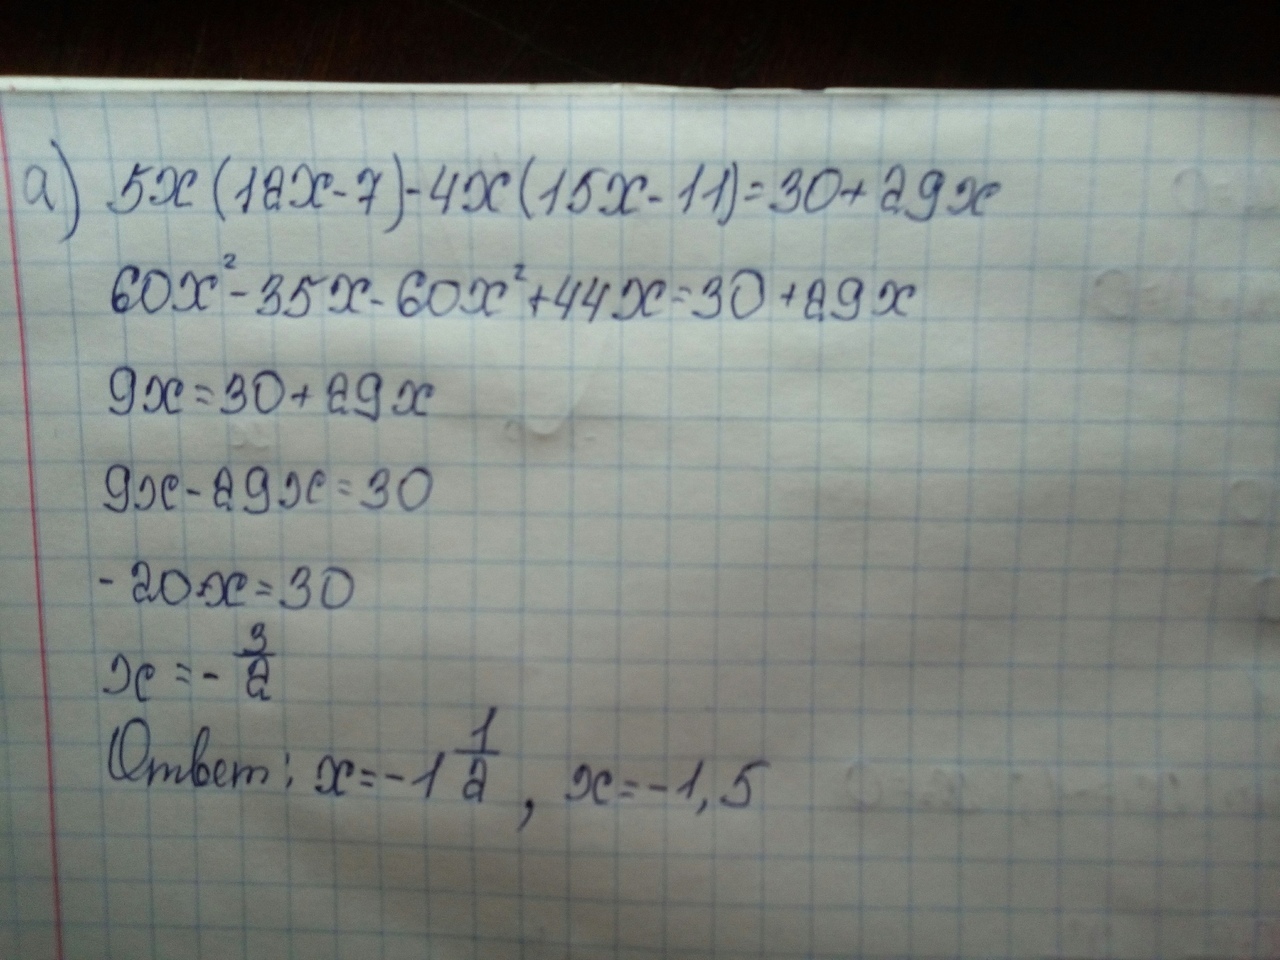 а) 5x(12x-7)-4x(15x-11)=30+29x
60x²-35x-60x²+44x=30+29x
9x=30+29x
9x-29x=30
-20x=30
x=-3/2
Ответ: x=-1 1/2, x=-1,5